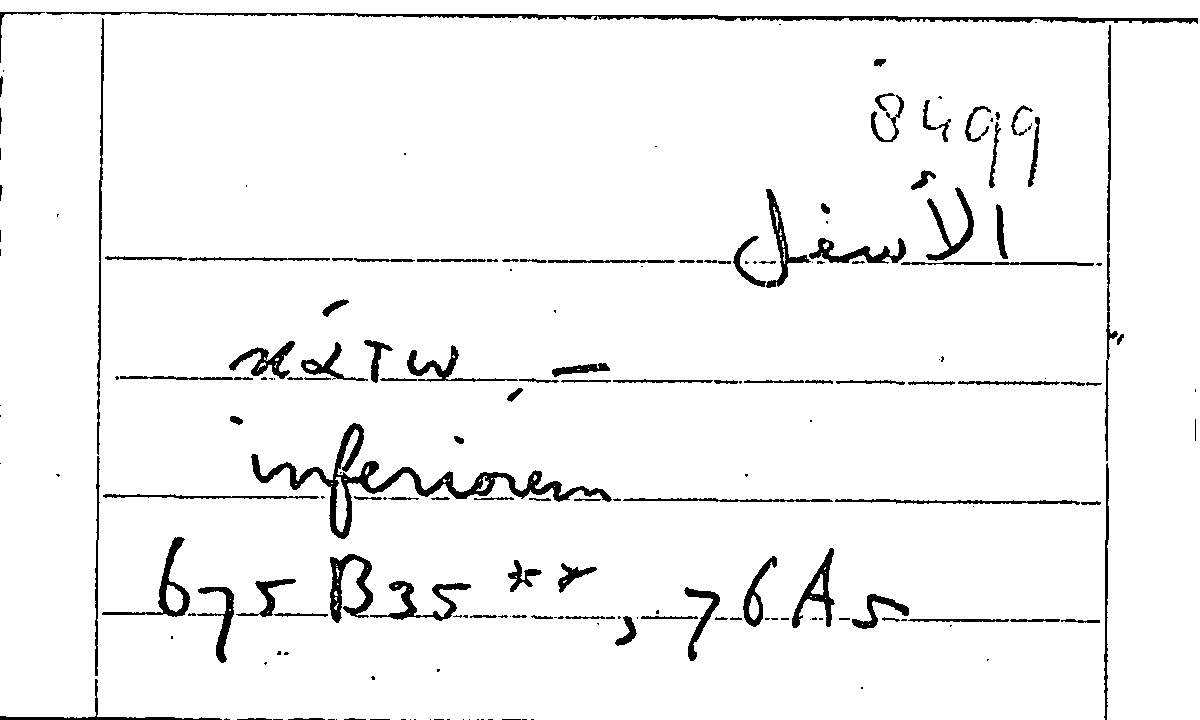 8499
الأسفل
κάτω, —
inferiorem
675B35**, 76A5